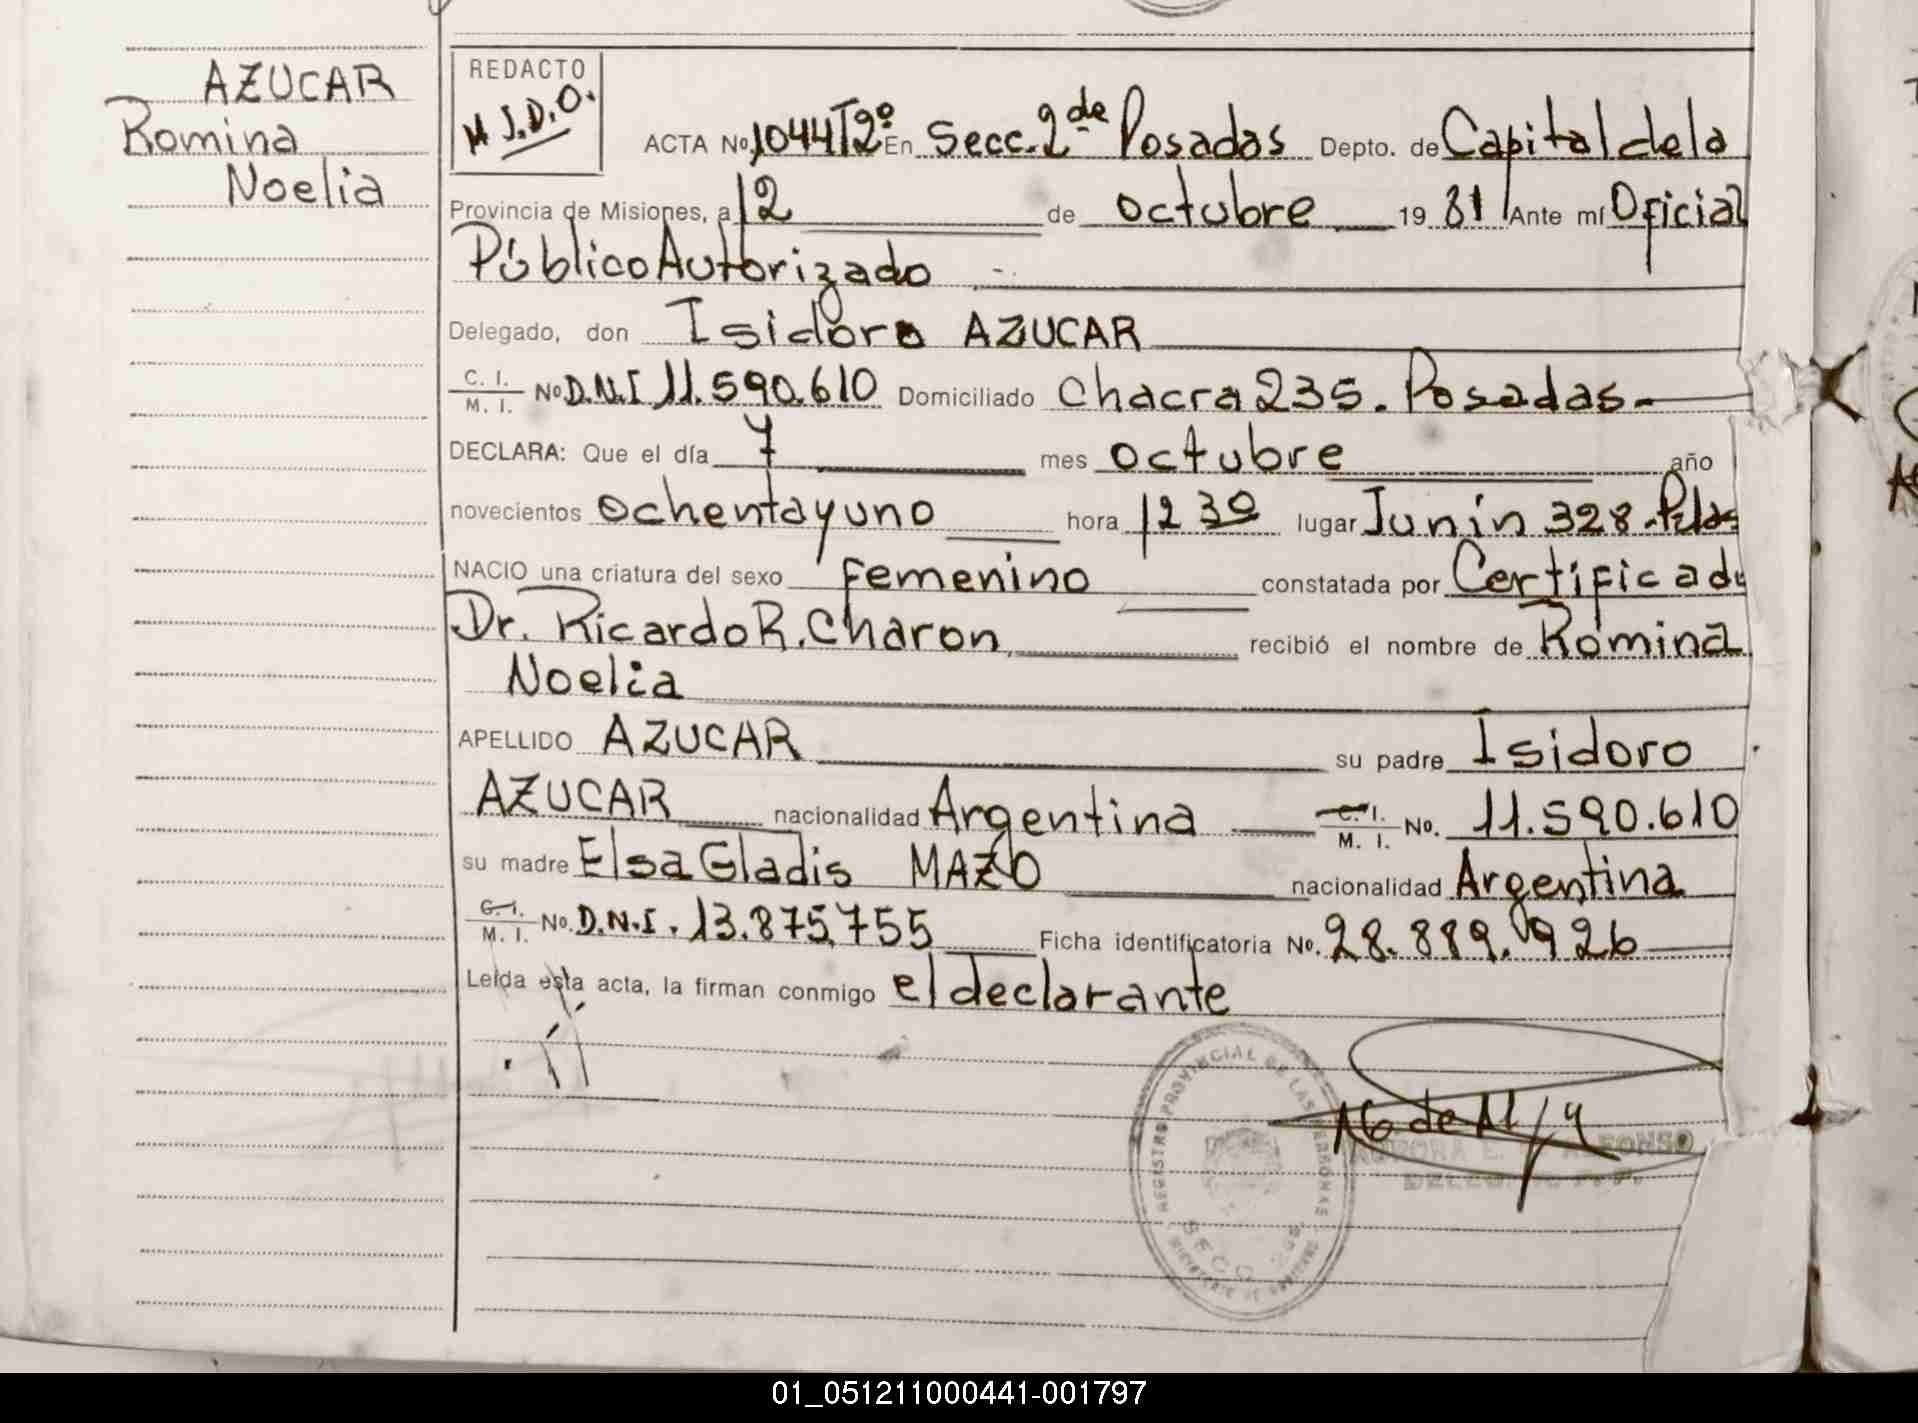 AZUCAR
Romina
Noelia
REDACTO
M J.D.O.
ACTA No. 1044 T2º En Secc. 2da Posadas Depto. de Capital de la
Provincia de Misiones, a 12 de octubre 1981 Ante mí Oficial
Público Autorizado
Delegado, don Isidoro AZUCAR
C. I. M. I. No D.N.I 11.590.610 Domiciliado Chacra 235. Posadas.-
DECLARA: Que el día 7 mes octubre año
novecientos ochenta y uno hora 12 30 lugar Junín 328.-Pdas
NACIO una criatura del sexo femenino constatada por Certificado
Dr. Ricardo R. Charon, recibió el nombre de Romina
Noelia
APELLIDO AZUCAR su padre Isidoro
AZUCAR nacionalidad Argentina C. I. M. I. No. 11.590.610
su madre Elsa Gladis MAZO nacionalidad Argentina
C. I. M. I. No. D.N.I. 13.875.755 Ficha identificatoria No. 28.889.926
Leída esta acta, la firman conmigo el declarante
REGISTRO PROVINCIAL DE LAS PERSONAS
SECC. 2da
MINISTERIO DE GOBIERNO
AURORA E. ALFONSO
01_051211000441-001797